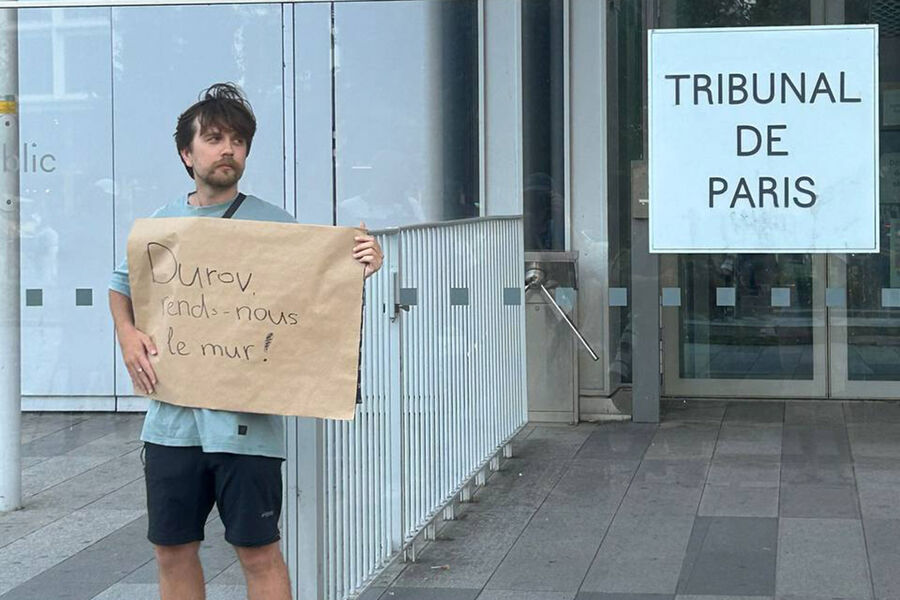 blic
Durov,
rends-nous
le mur!
TRIBUNAL
DE
PARIS